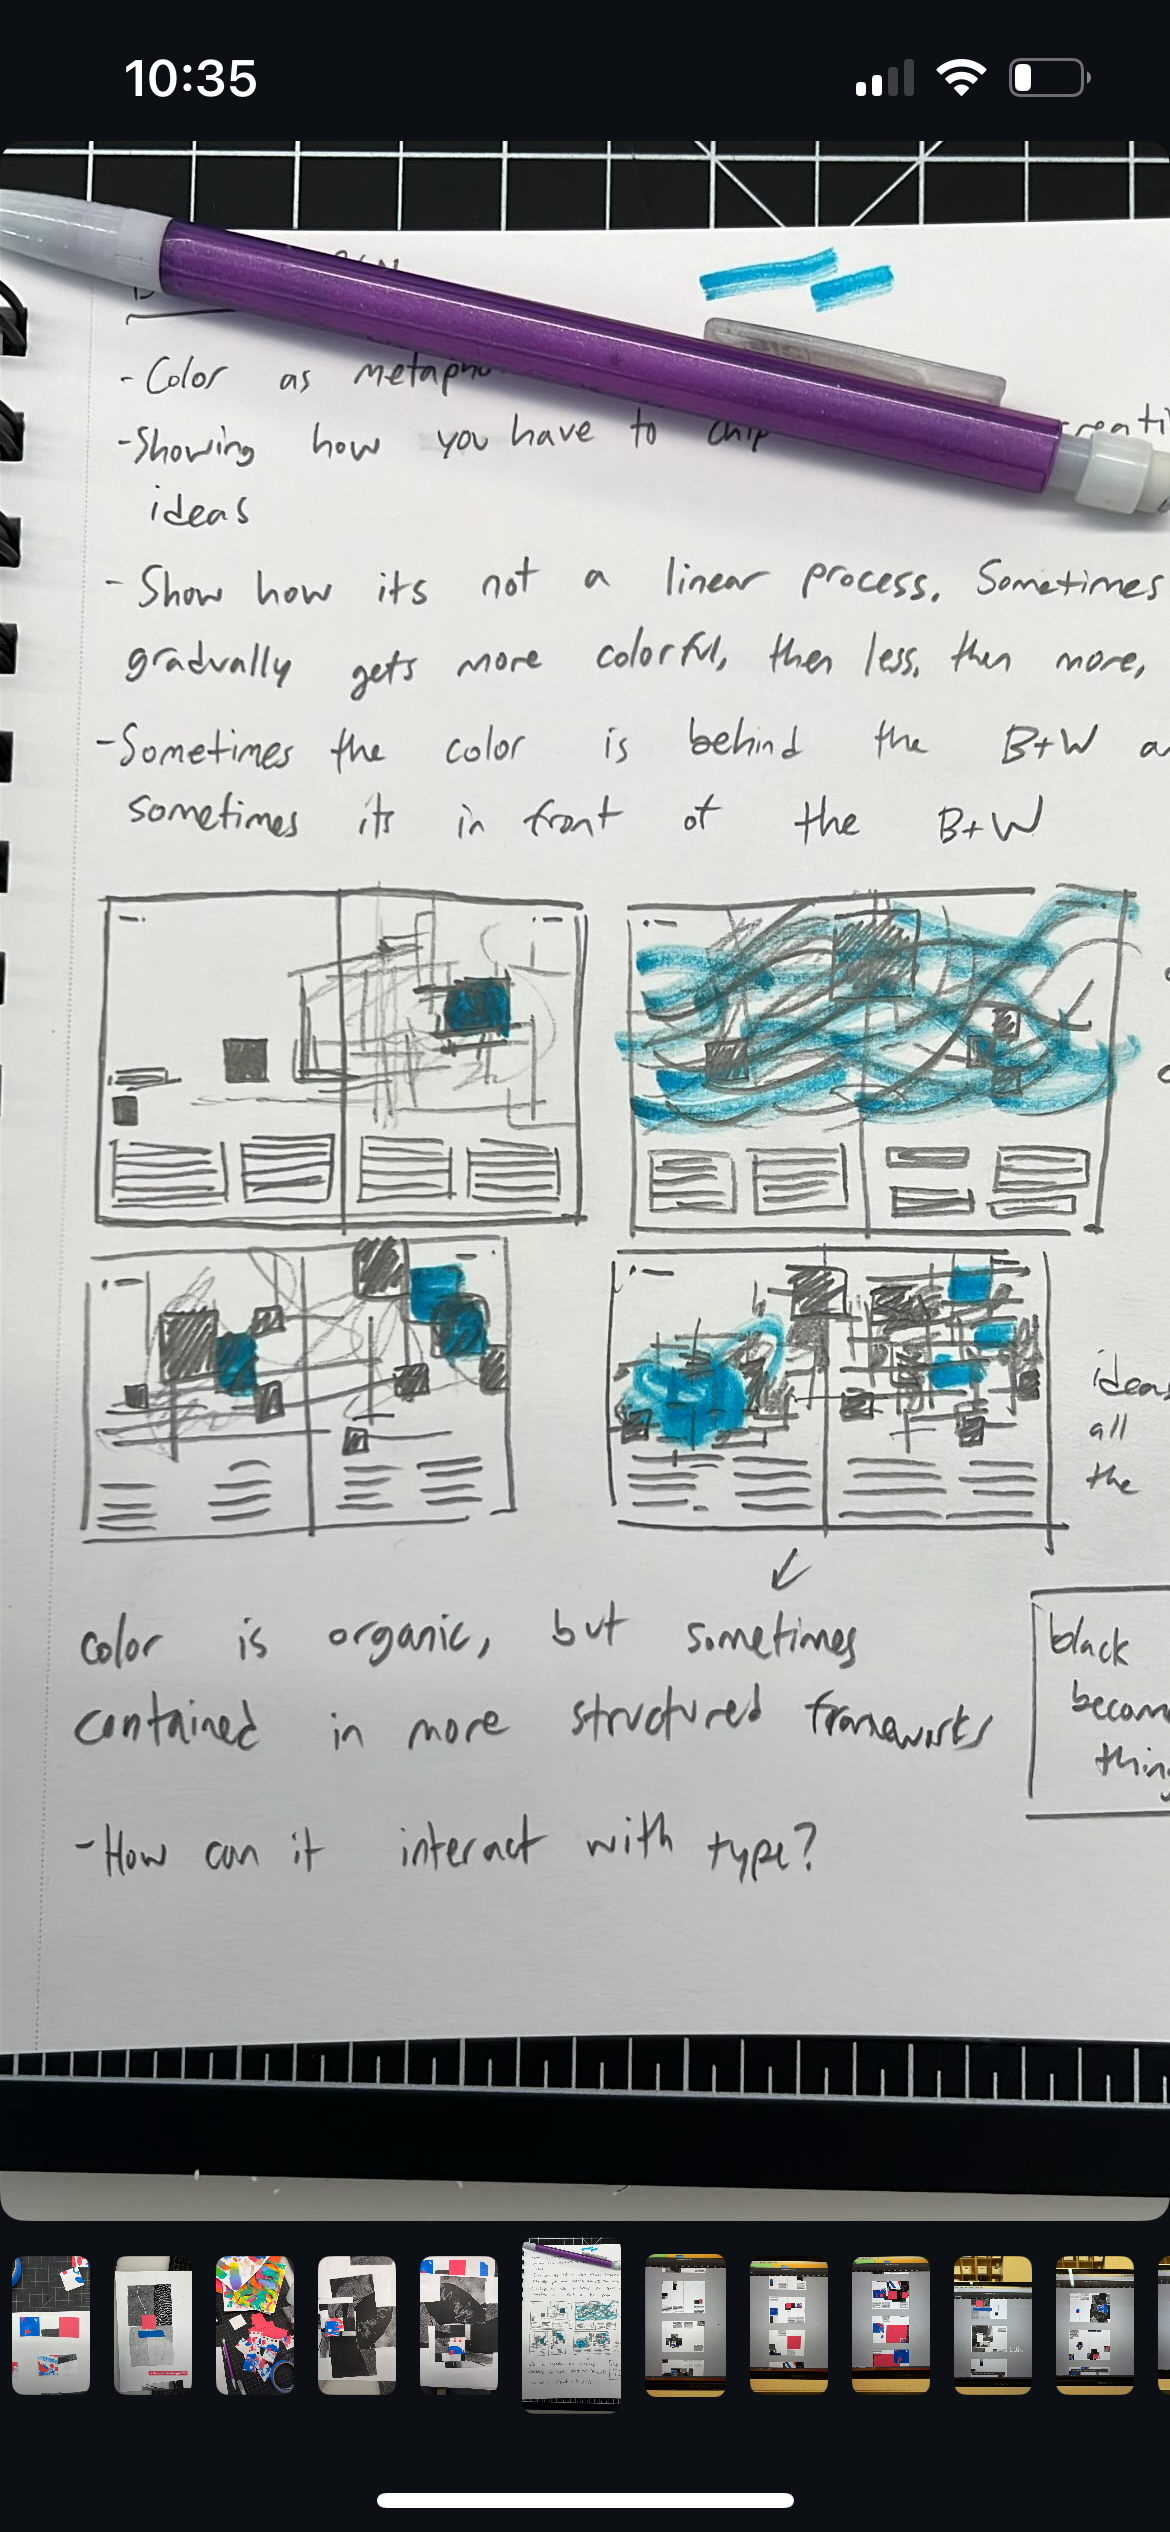 10:35
- Color as
- Showing how you have to chip
ideas
- Show how its not a linear process. Sometimes
gradually gets more colorful, then less, then more,
- Sometimes the color is behind the B+W
sometimes its in front of the B+W
ideas
all
the
color is organic, but sometimes
contained in more structured frameworks
black
- How can it interact with type?